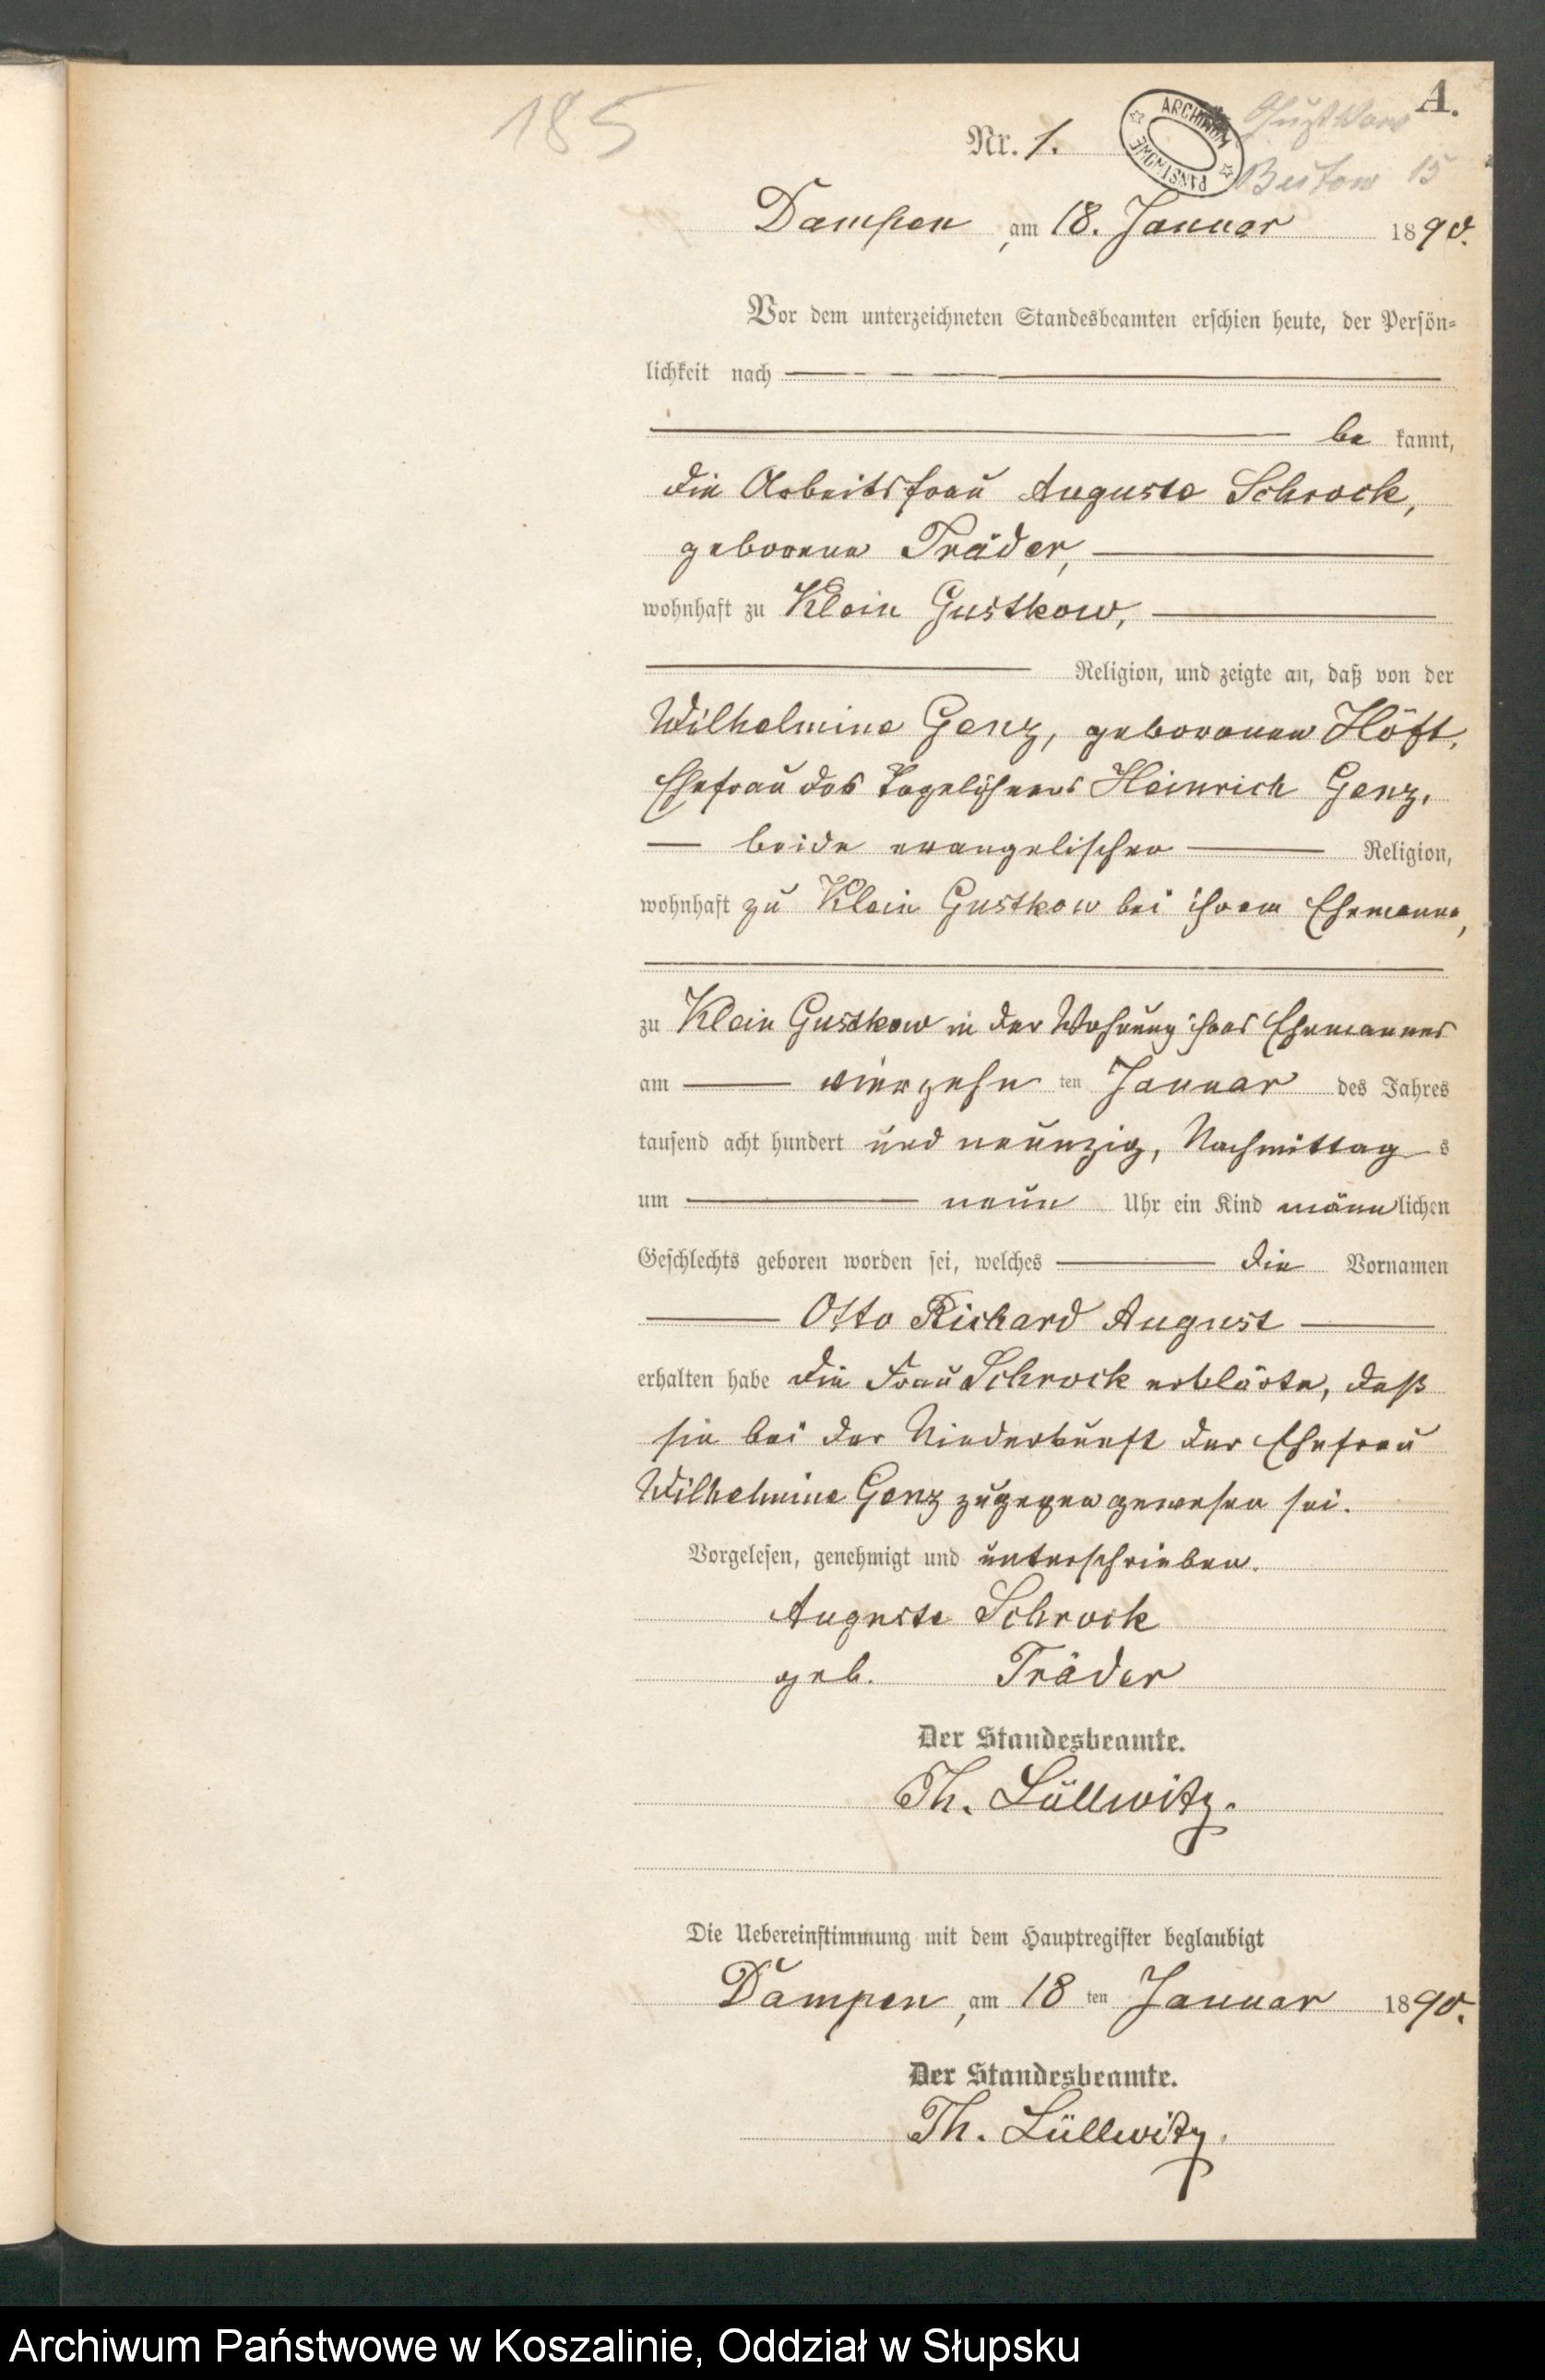 185
A.
Nr. 1.
ARCHIWUM PAŃSTWOWE
Gustkow
Butow 15
Dampen, am 18. Januar 1890.
Vor dem unterzeichneten Standesbeamten erschien heute, der Persön-
lichkeit nach
be kannt,
die Arbeitsfrau Auguste Schrock,
geborene Träder,
wohnhaft zu Klein Gustkow,
Religion, und zeigte an, daß von der
Wilhelmine Genz, geborenen Höft,
Ehefrau des Tagelöhners Heinrich Genz,
beide evangelischer Religion,
wohnhaft zu Klein Gustkow bei ihrem Ehemanne,
zu Klein Gustkow in der Wohnung ihres Ehemannes
am vierzehn ten Januar des Jahres
tausend acht hundert und neunzig, Nachmittag s
um neun Uhr ein Kind männlichen
Geschlechts geboren worden sei, welches die Vornamen
Otto Richard August
erhalten habe die Frau Schrock erklärte, daß
sie bei der Niederkunft der Ehefrau
Wilhelmine Genz zugegen gewesen sei.
Vorgelesen, genehmigt und unterschrieben.
Auguste Schrock
geb. Träder
Der Standesbeamte.
Th. Lüllwitz.
Die Uebereinstimmung mit dem Hauptregister beglaubigt
Dampen, am 18 ten Januar 1890.
Der Standesbeamte.
Th. Lüllwitz.
Archiwum Państwowe w Koszalinie, Oddział w Słupsku